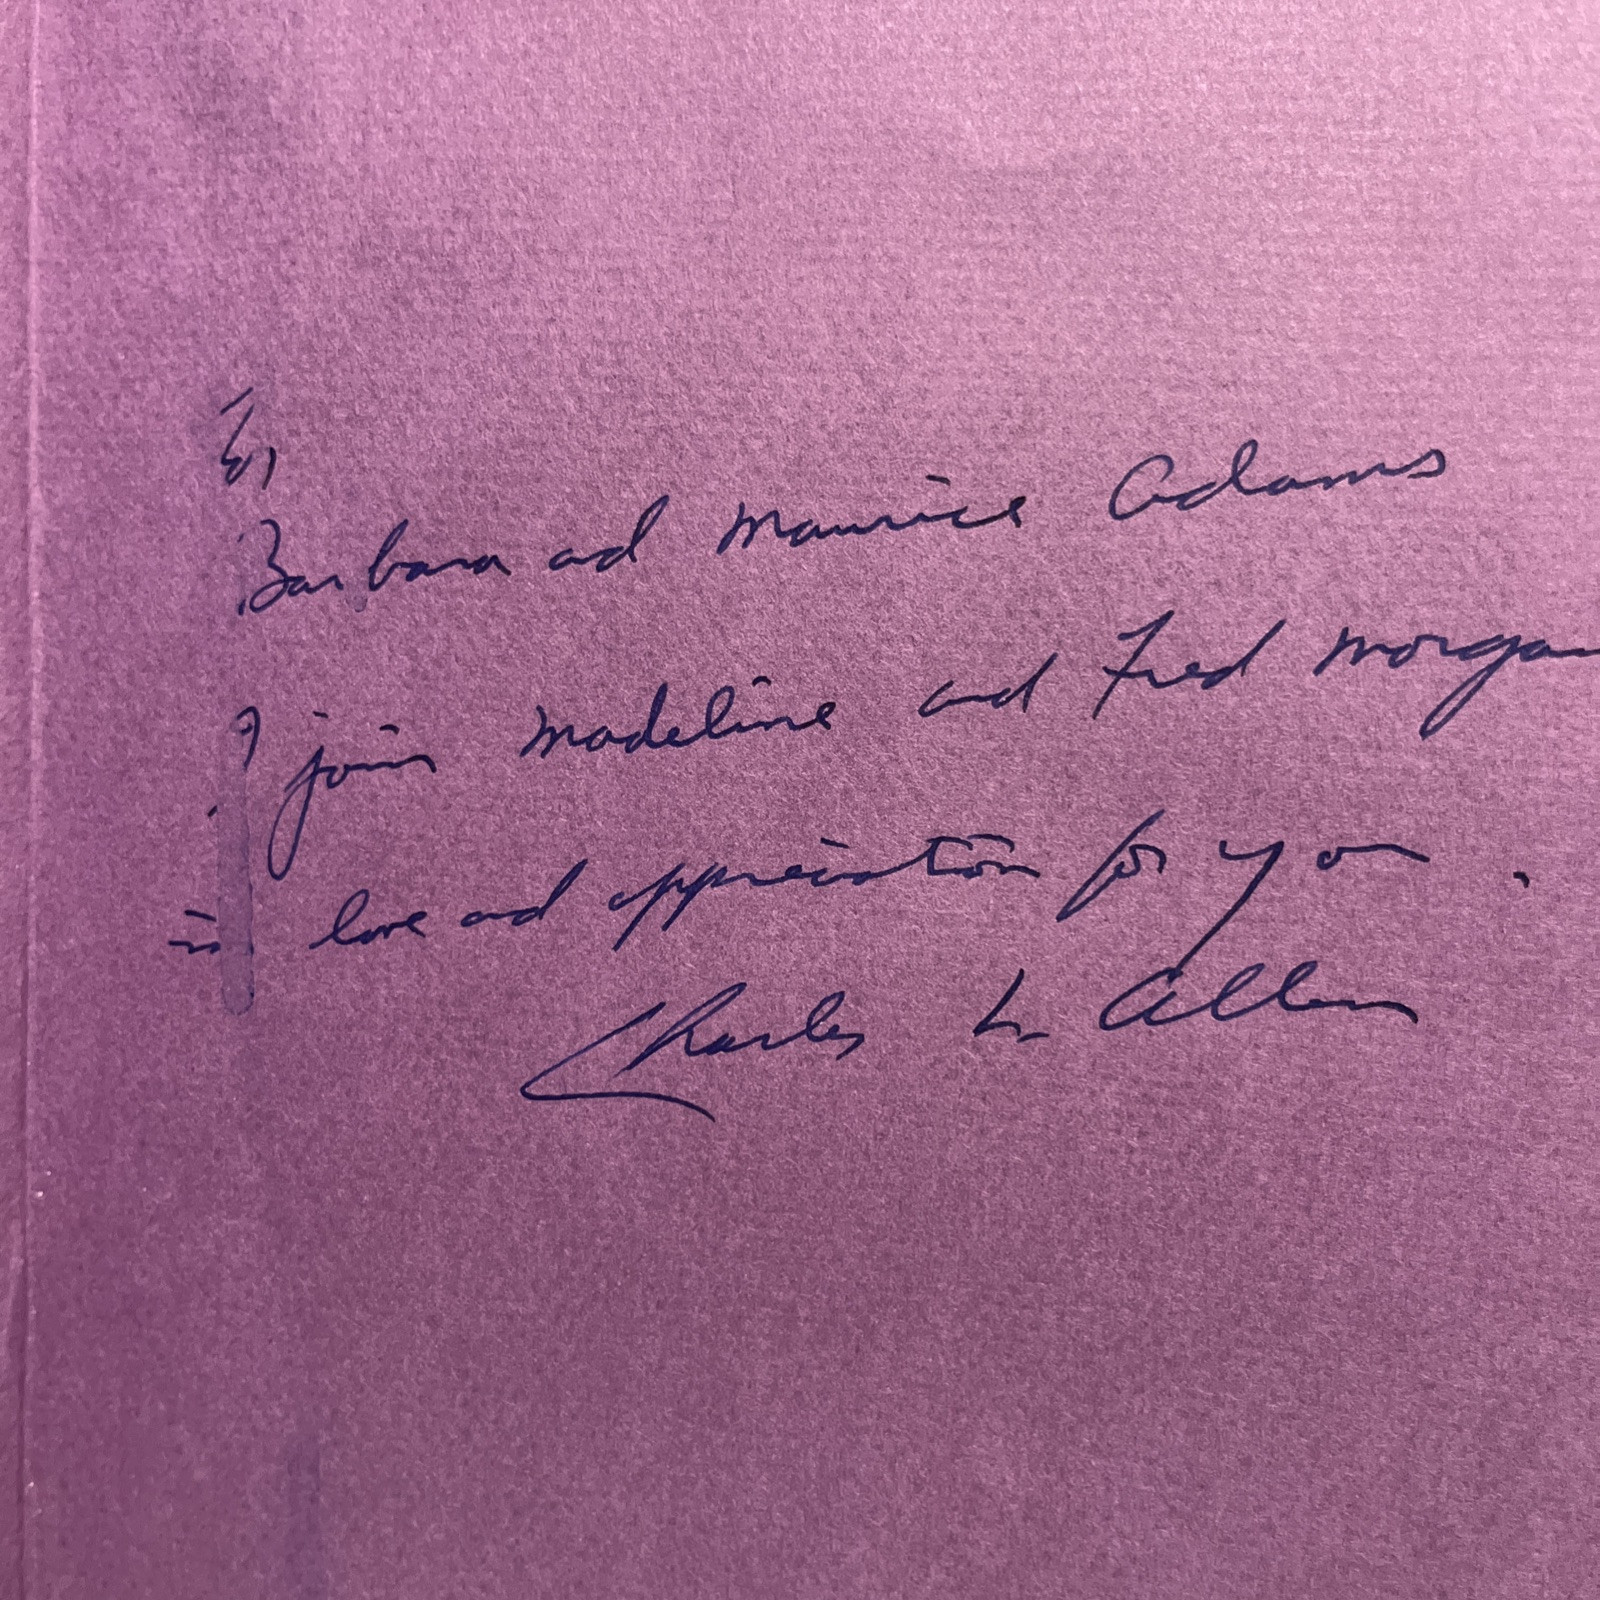 To
Barbara and Maurice Adams
I join Madeline and Fred Morgan
in love and appreciation for you.
Charles L. Allen